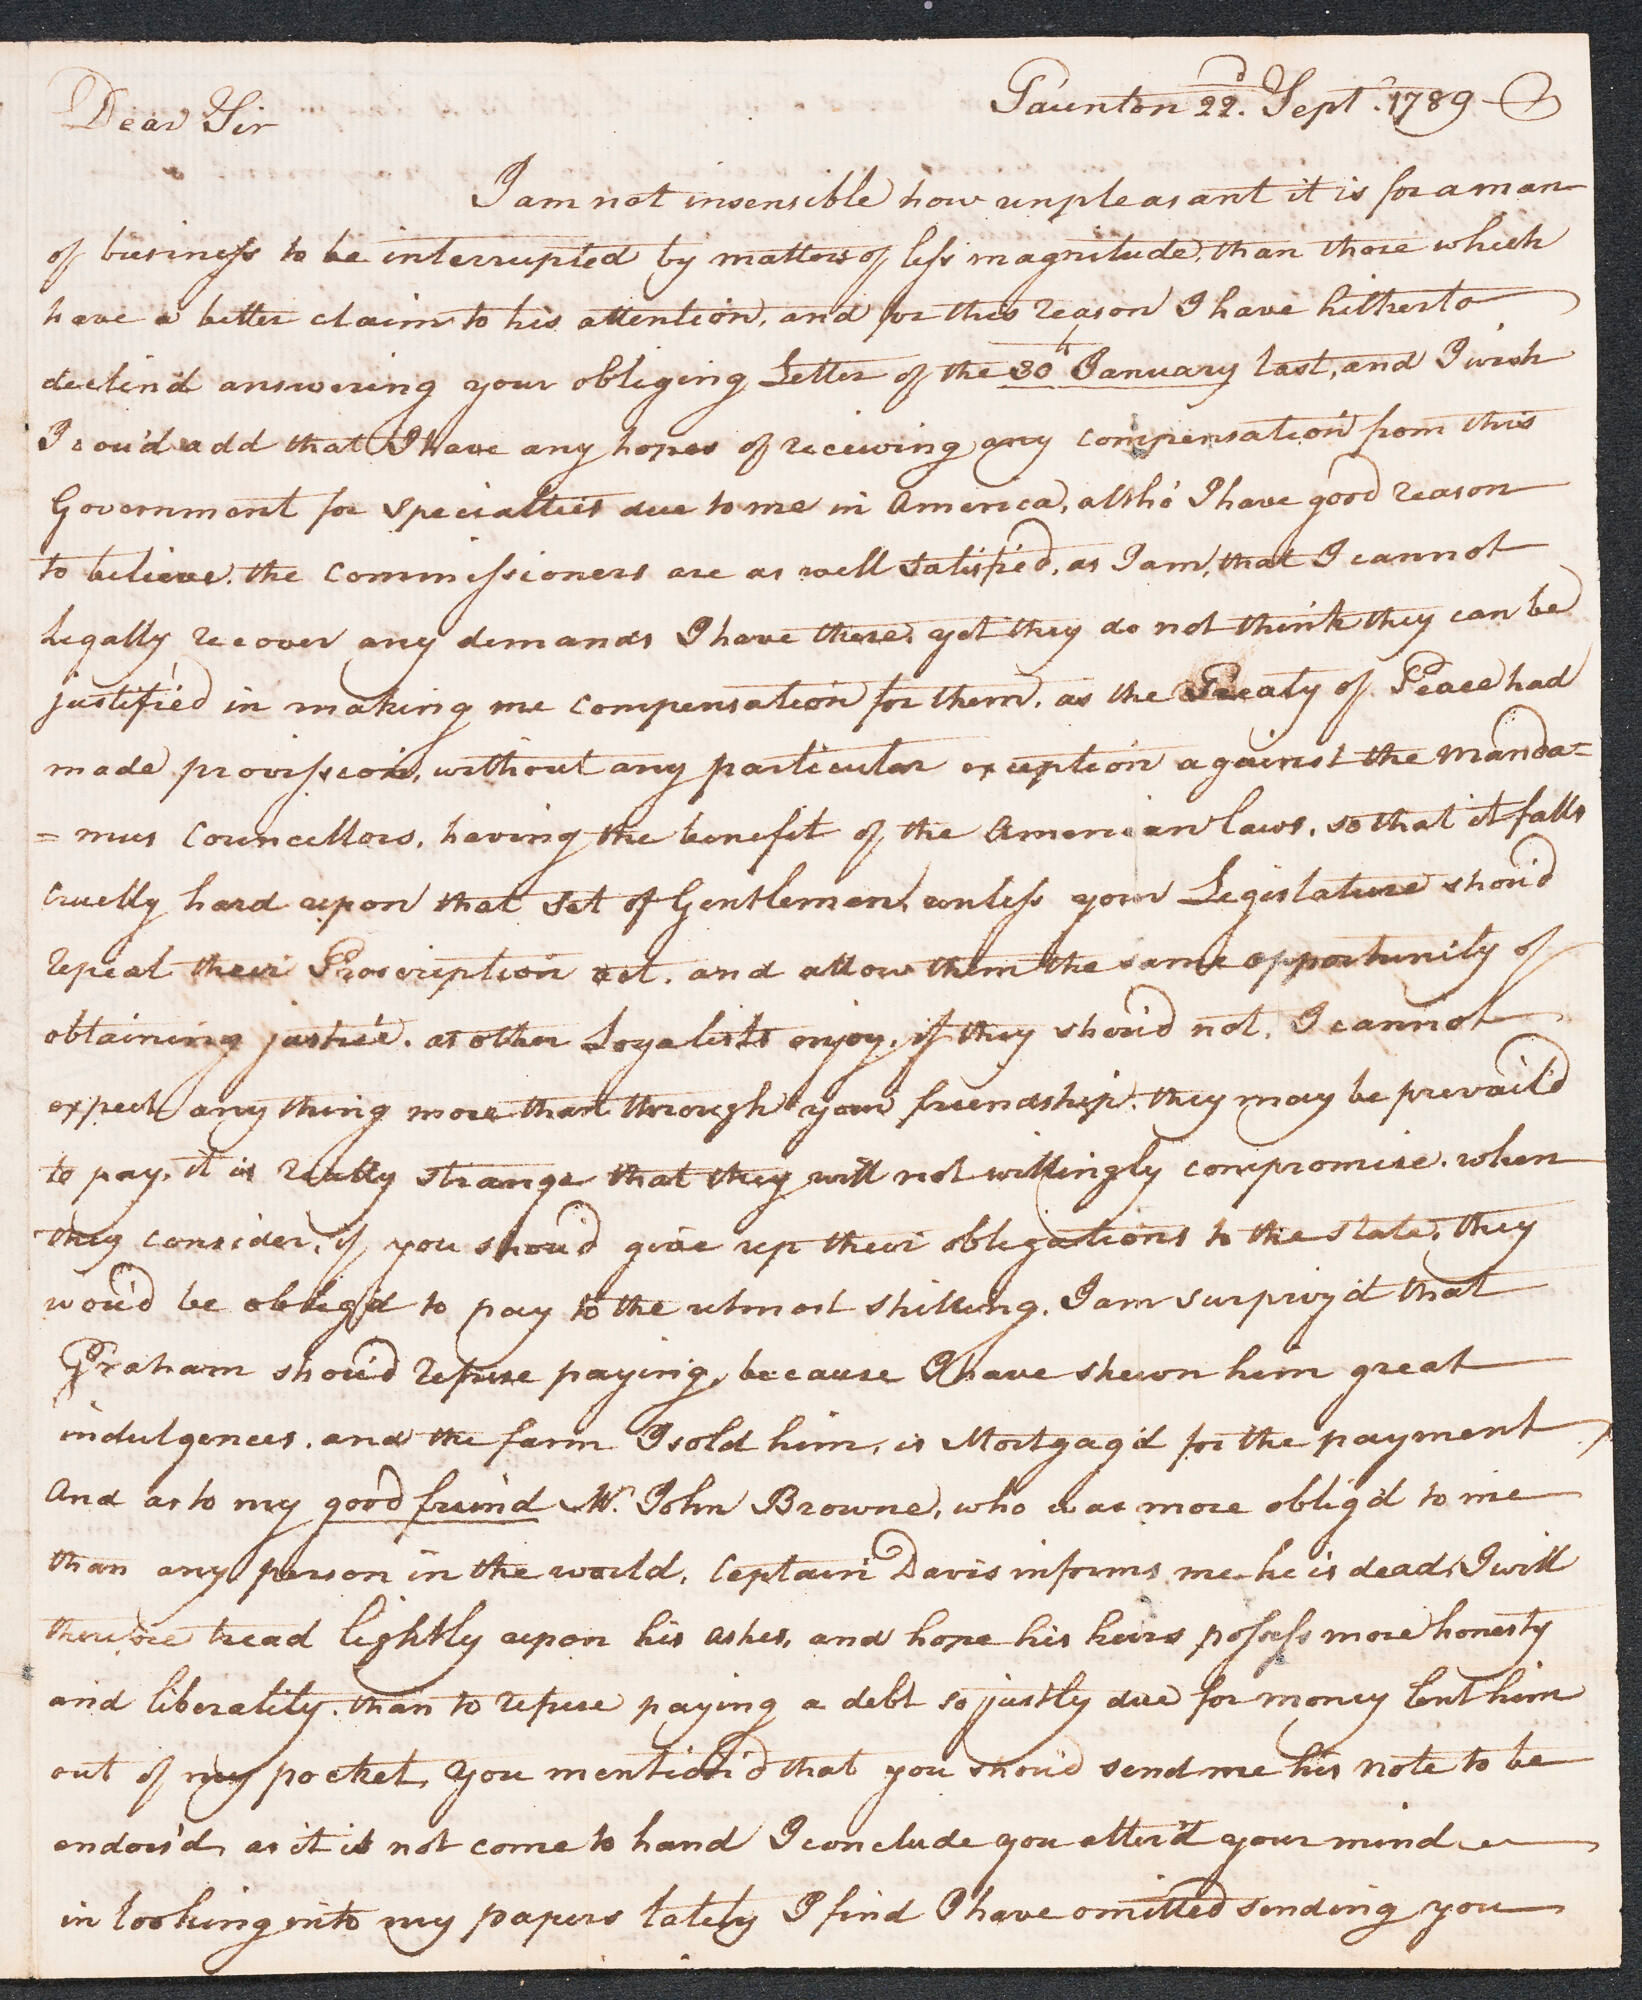 Taunton 22.d Sept.r 1789
Dear Sir
I am not insensible how unpleasant it is for a man
of business to be interrupted by matters of less magnitude, than those which
have a better claim to his attention, and for this reason I have hitherto
declin'd answering your obliging Letter of the 30th January last, and I wish
I cou'd add that I have any hopes of receiving any compensation from this
Government for specialties due to me in America, altho' I have good reason
to believe, the Commissioners are as well satisfied, as I am, that I cannot
legally recover any demands I have there, yet they do not think they can be
justified in making me compensation for them, as the Treaty of Peace had
made provission, without any particular exception against the Manda=
=mus Councellors, having the benefit of the American laws, so that it falls
cruelly hard upon that set of Gentlemen, unless your Legislature shou'd
repeal their Proscription act, and allow them the same opportunity of
obtaining justice, as other Loyalists enjoy, if they shou'd not, I cannot
expect any thing more than through your friendship, they may be prevail'd
to pay, it is really strange that they will not willingly compromise, when
they consider, if you shou'd give up their obligations to the State, they
wou'd be oblig'd to pay to the utmost shilling. I am surpriz'd that
Graham shou'd refuse paying, because I have shewn him great
indulgences, and the farm I sold him, is Mortgag'd for the payment
And as to my good freind Mr. John Browne, who was more oblig'd to me
than any person in the world, Captain Davis informs me he is dead, I will
therefore tread lightly upon his ashes, and hope his heirs possess more honesty
and liberality, than to refuse paying a debt so justly due for money lent him
out of my pocket, You mention'd that you shou'd send me his note to be
endors'd, as it is not come to hand I conclude you alter'd your mind
in looking into my papers lately I find I have omitted sending you